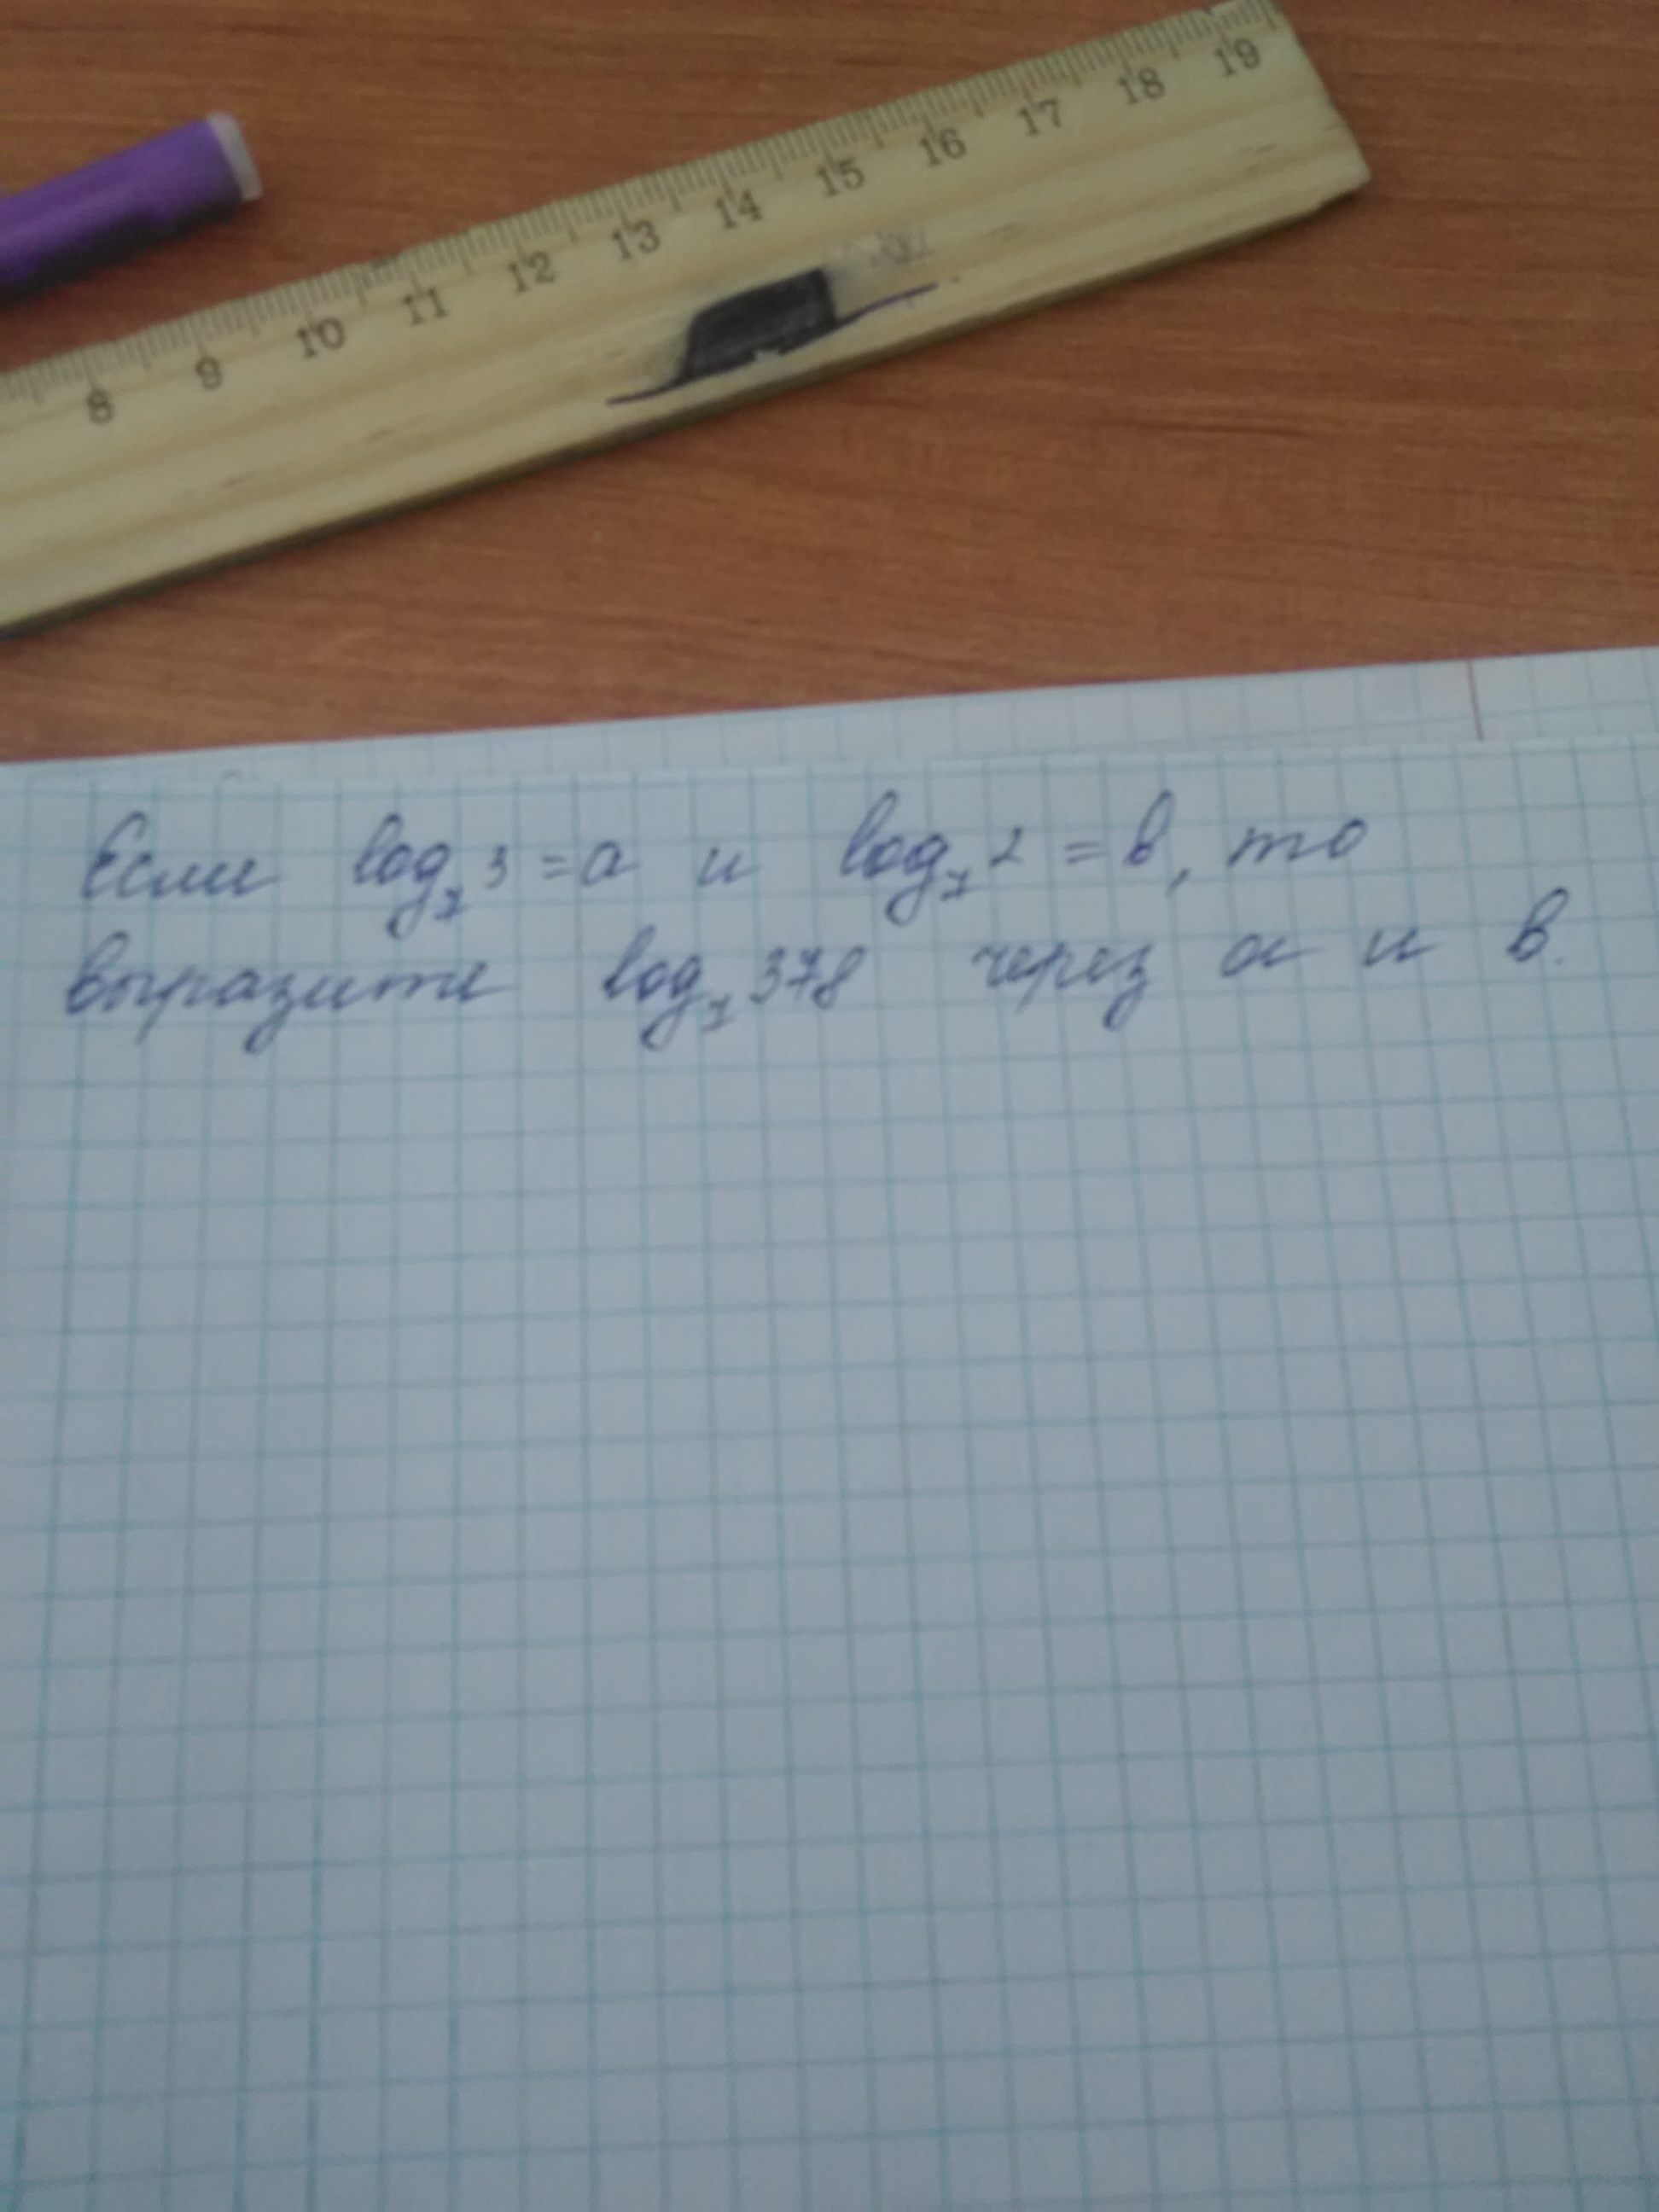 8 9 10 11 12 13 14 15 16 17 18 19
Если log₇3 = a и log₇2 = b, то
выразите log₇378 через a и b.